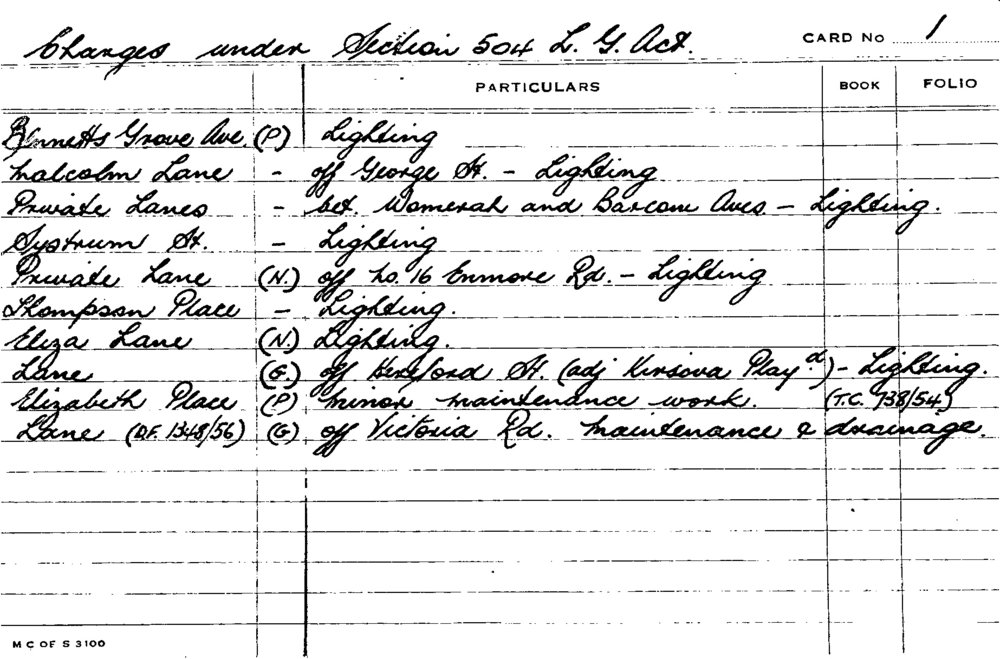 Charges under Section 504 L. G. Act. CARD No 1
PARTICULARS BOOK FOLIO
Bennetts Grove Ave. (P) Lighting
Malcolm Lane - off George St. - Lighting
Private Lanes - bet. Womerah and Barcom Aves. - Lighting.
Systrum St. - Lighting
Private Lane (N.) off No. 16 Enmore Rd. - Lighting
Thompson Place - Lighting.
Eliza Lane (N.) Lighting.
Lane (G.) off Hereford St. (adj Kirsova Playd) - Lighting.
Elizabeth Place (P) Minor maintenance work. (T.C. 738/54)
Lane (D.F. 1348/56) (G) off Victoria Rd. Maintenance & drainage.
M C OF S 3100